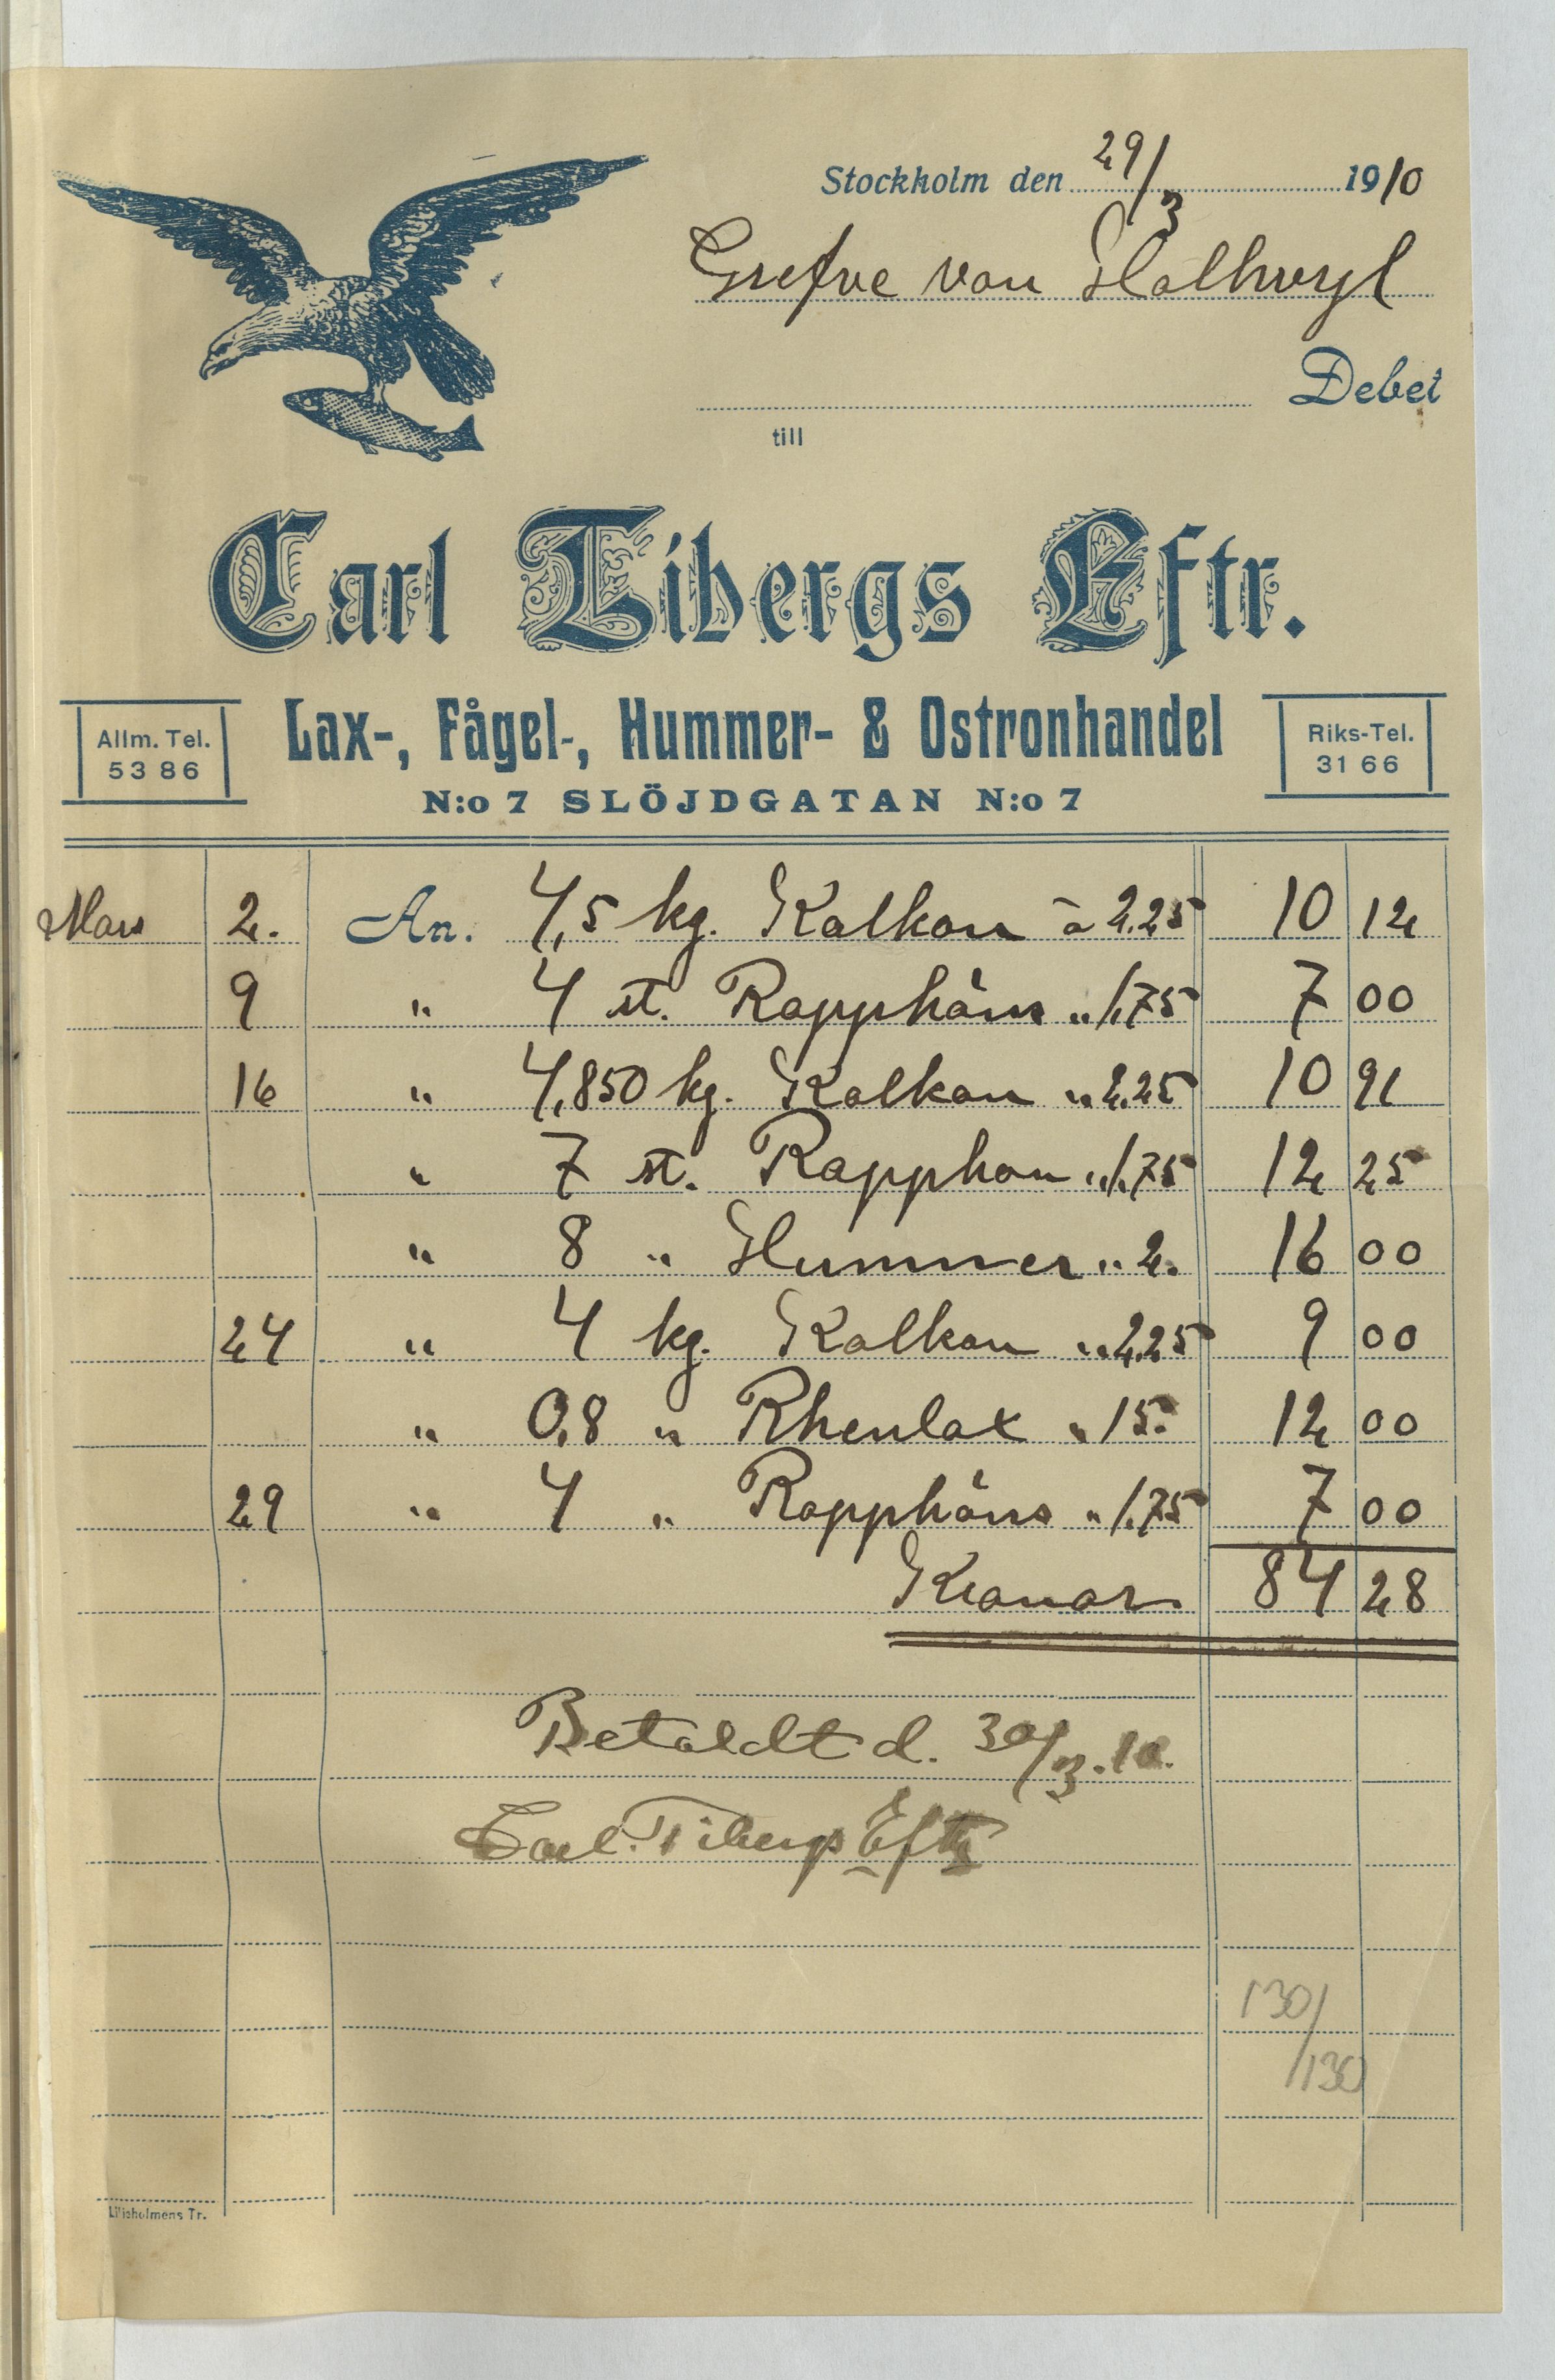 Stockholm den 29/3 1910
Grefve von Hallwyl
Debet
till
Carl Tibergs Eftr.
Lax-, Fågel-, Hummer- & Ostronhandel
Allm. Tel.
53 86
Riks-Tel.
31 66
N:o 7 SLÖJDGATAN N:o 7
Mars 2. An. 4,5 kg. Kalkon à 2.25 10 12
9 " 4 st. Rapphöns " 1,75 7 00
16 " 4,850 kg. Kalkon " 2.25 10 91
" 7 st. Rapphöns " 1.75 12 25
" 8 " Hummer " 2. 16 00
24 " 4 kg. Kalkon " 2.25 9 00
" 0,8 " Rhenlax " 15. 12 00
29 " 4 " Rapphöns " 1.75 7 00
Kronor 84 28
Betaldt d. 30/3.10.
Carl Tibergs Eftr
130/
/130
Liljeholmens Tr.